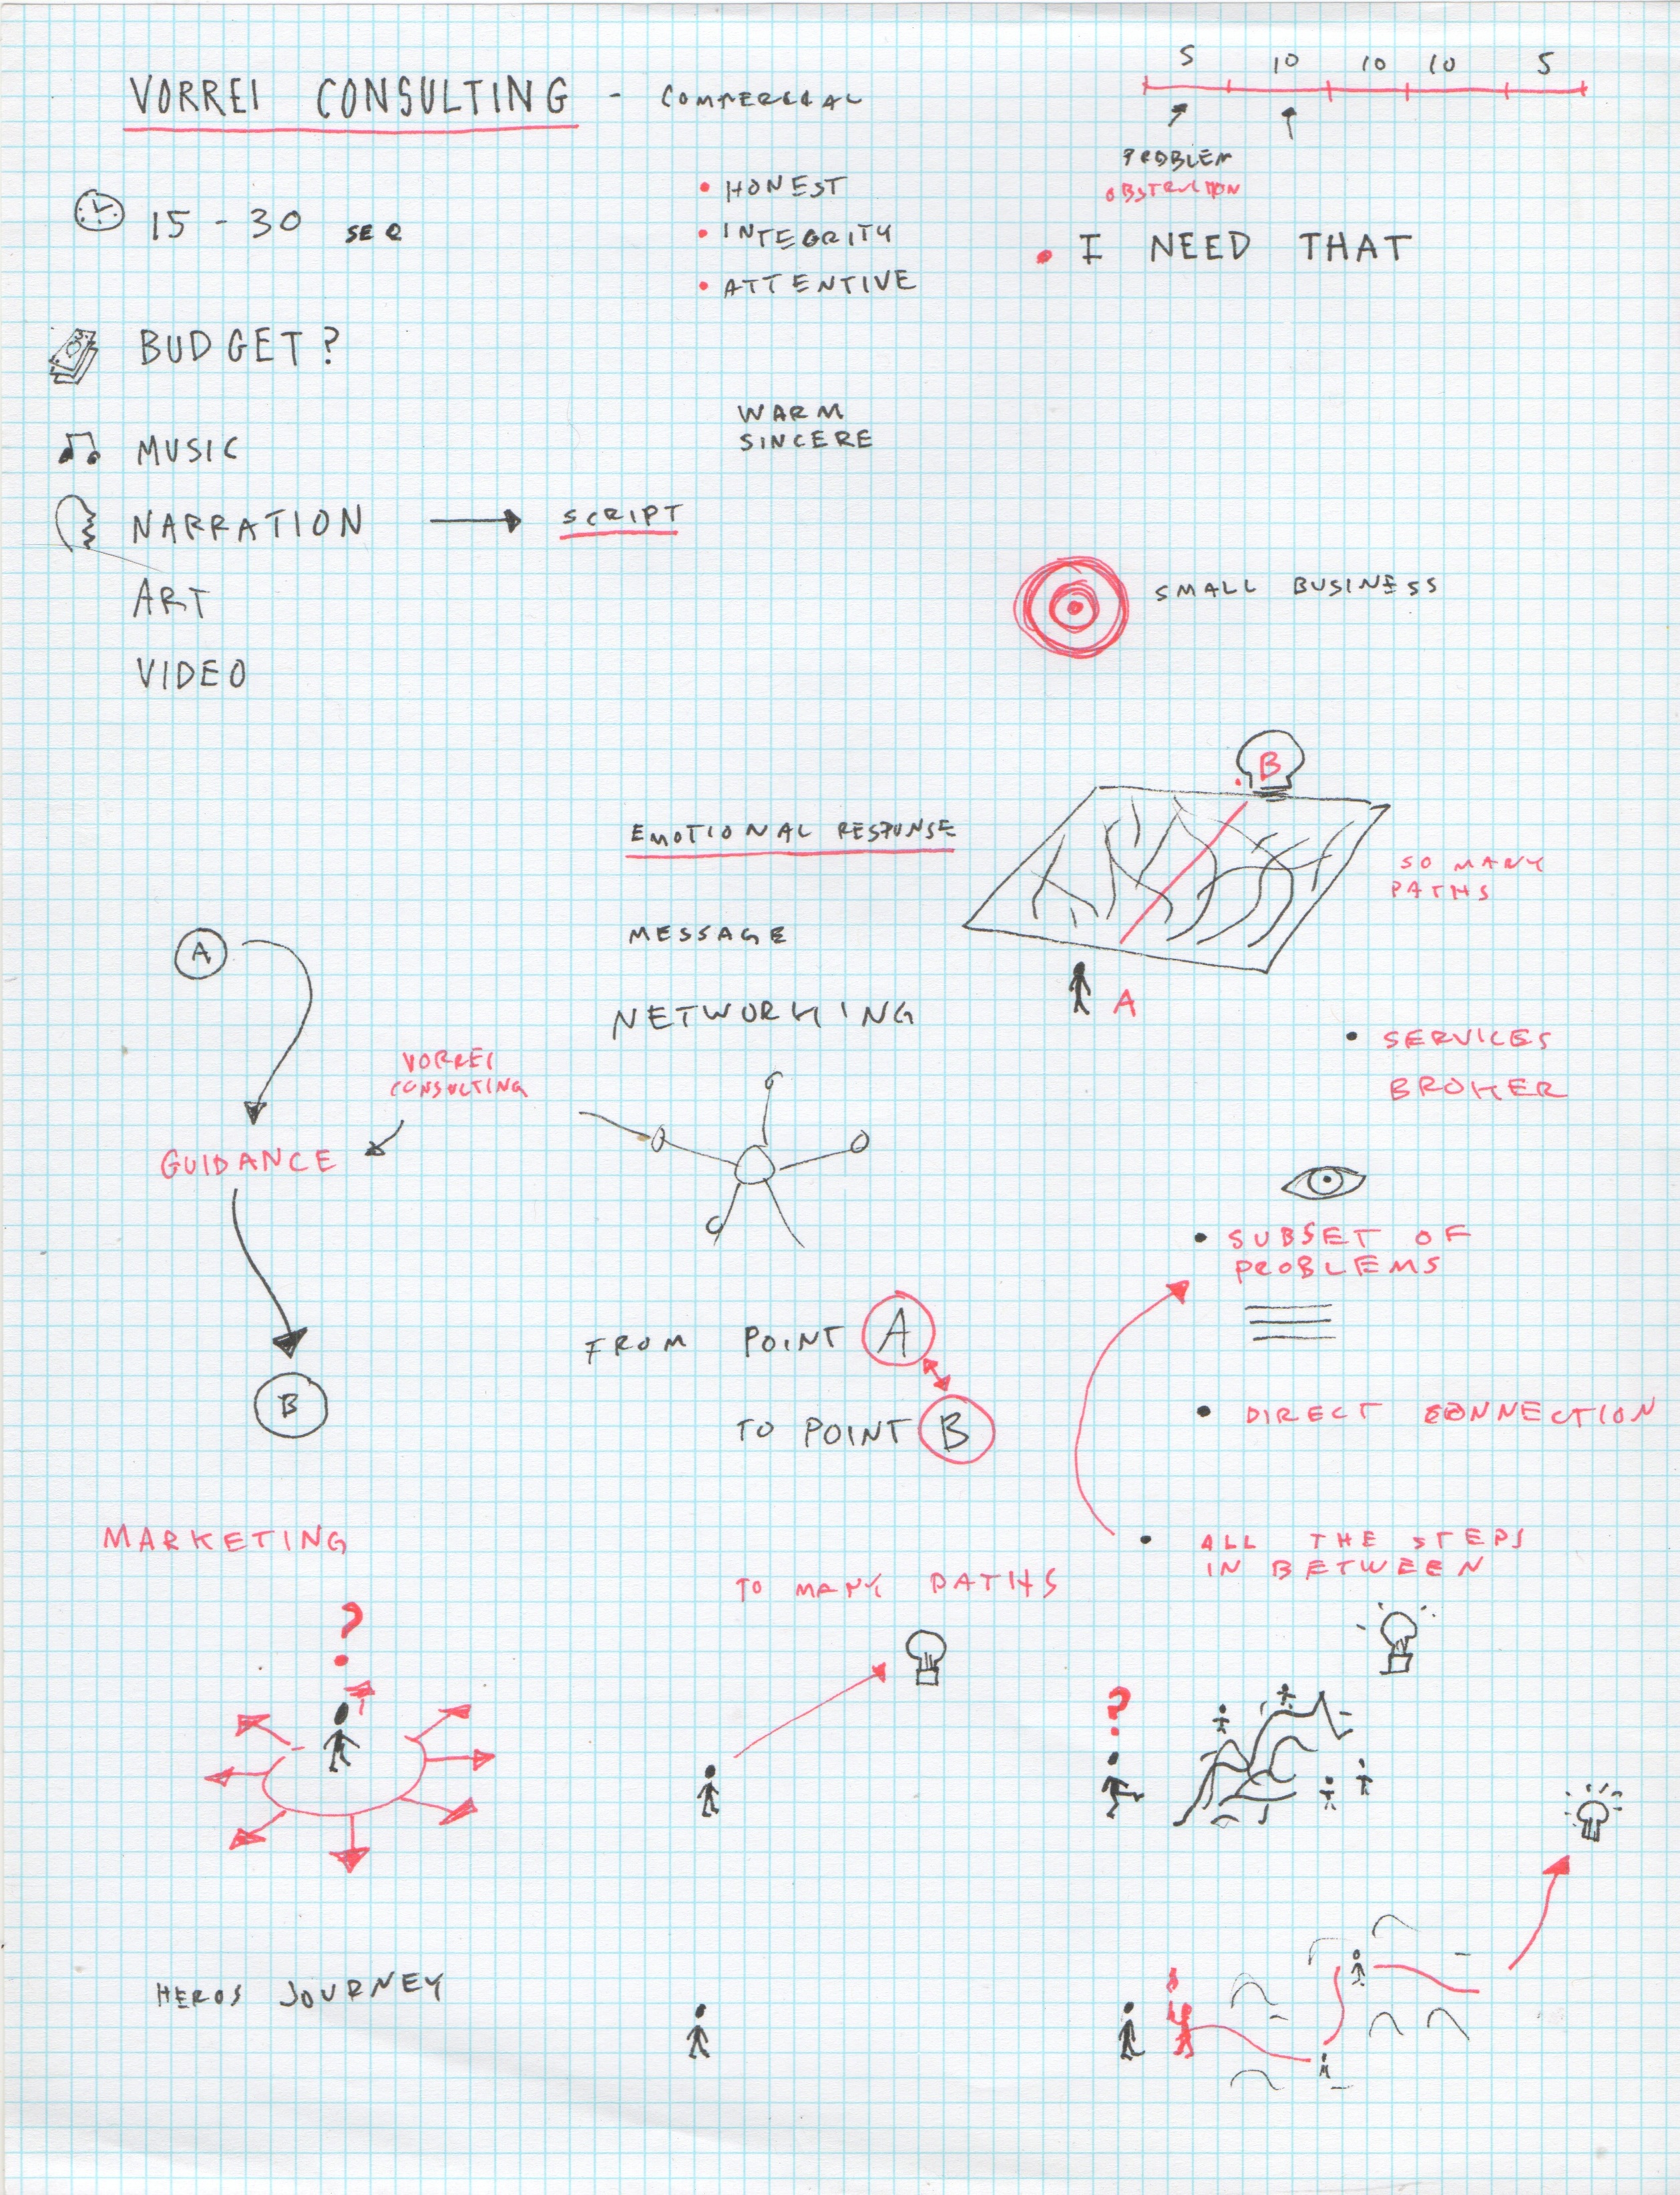 VORREI CONSULTING - COMMERCIAL
5 10 10 10 5
PROBLEM
OBSTRUCTION
15 - 30 SEC
• HONEST
• INTEGRITY
• ATTENTIVE
• I NEED THAT
BUDGET?
WARM
SINCERE
MUSIC
NARRATION → SCRIPT
ART
VIDEO
SMALL BUSINESS
B
EMOTIONAL RESPONSE
SO MANY
PATHS
MESSAGE
A
A
NETWORKING
• SERVICES
BROKER
VORREI
CONSULTING
GUIDANCE
• SUBSET OF
PROBLEMS
FROM POINT A
TO POINT B
B
• DIRECT CONNECTION
MARKETING
• ALL THE STEPS
IN BETWEEN
TO MANY PATHS
?
?
HEROS JOURNEY